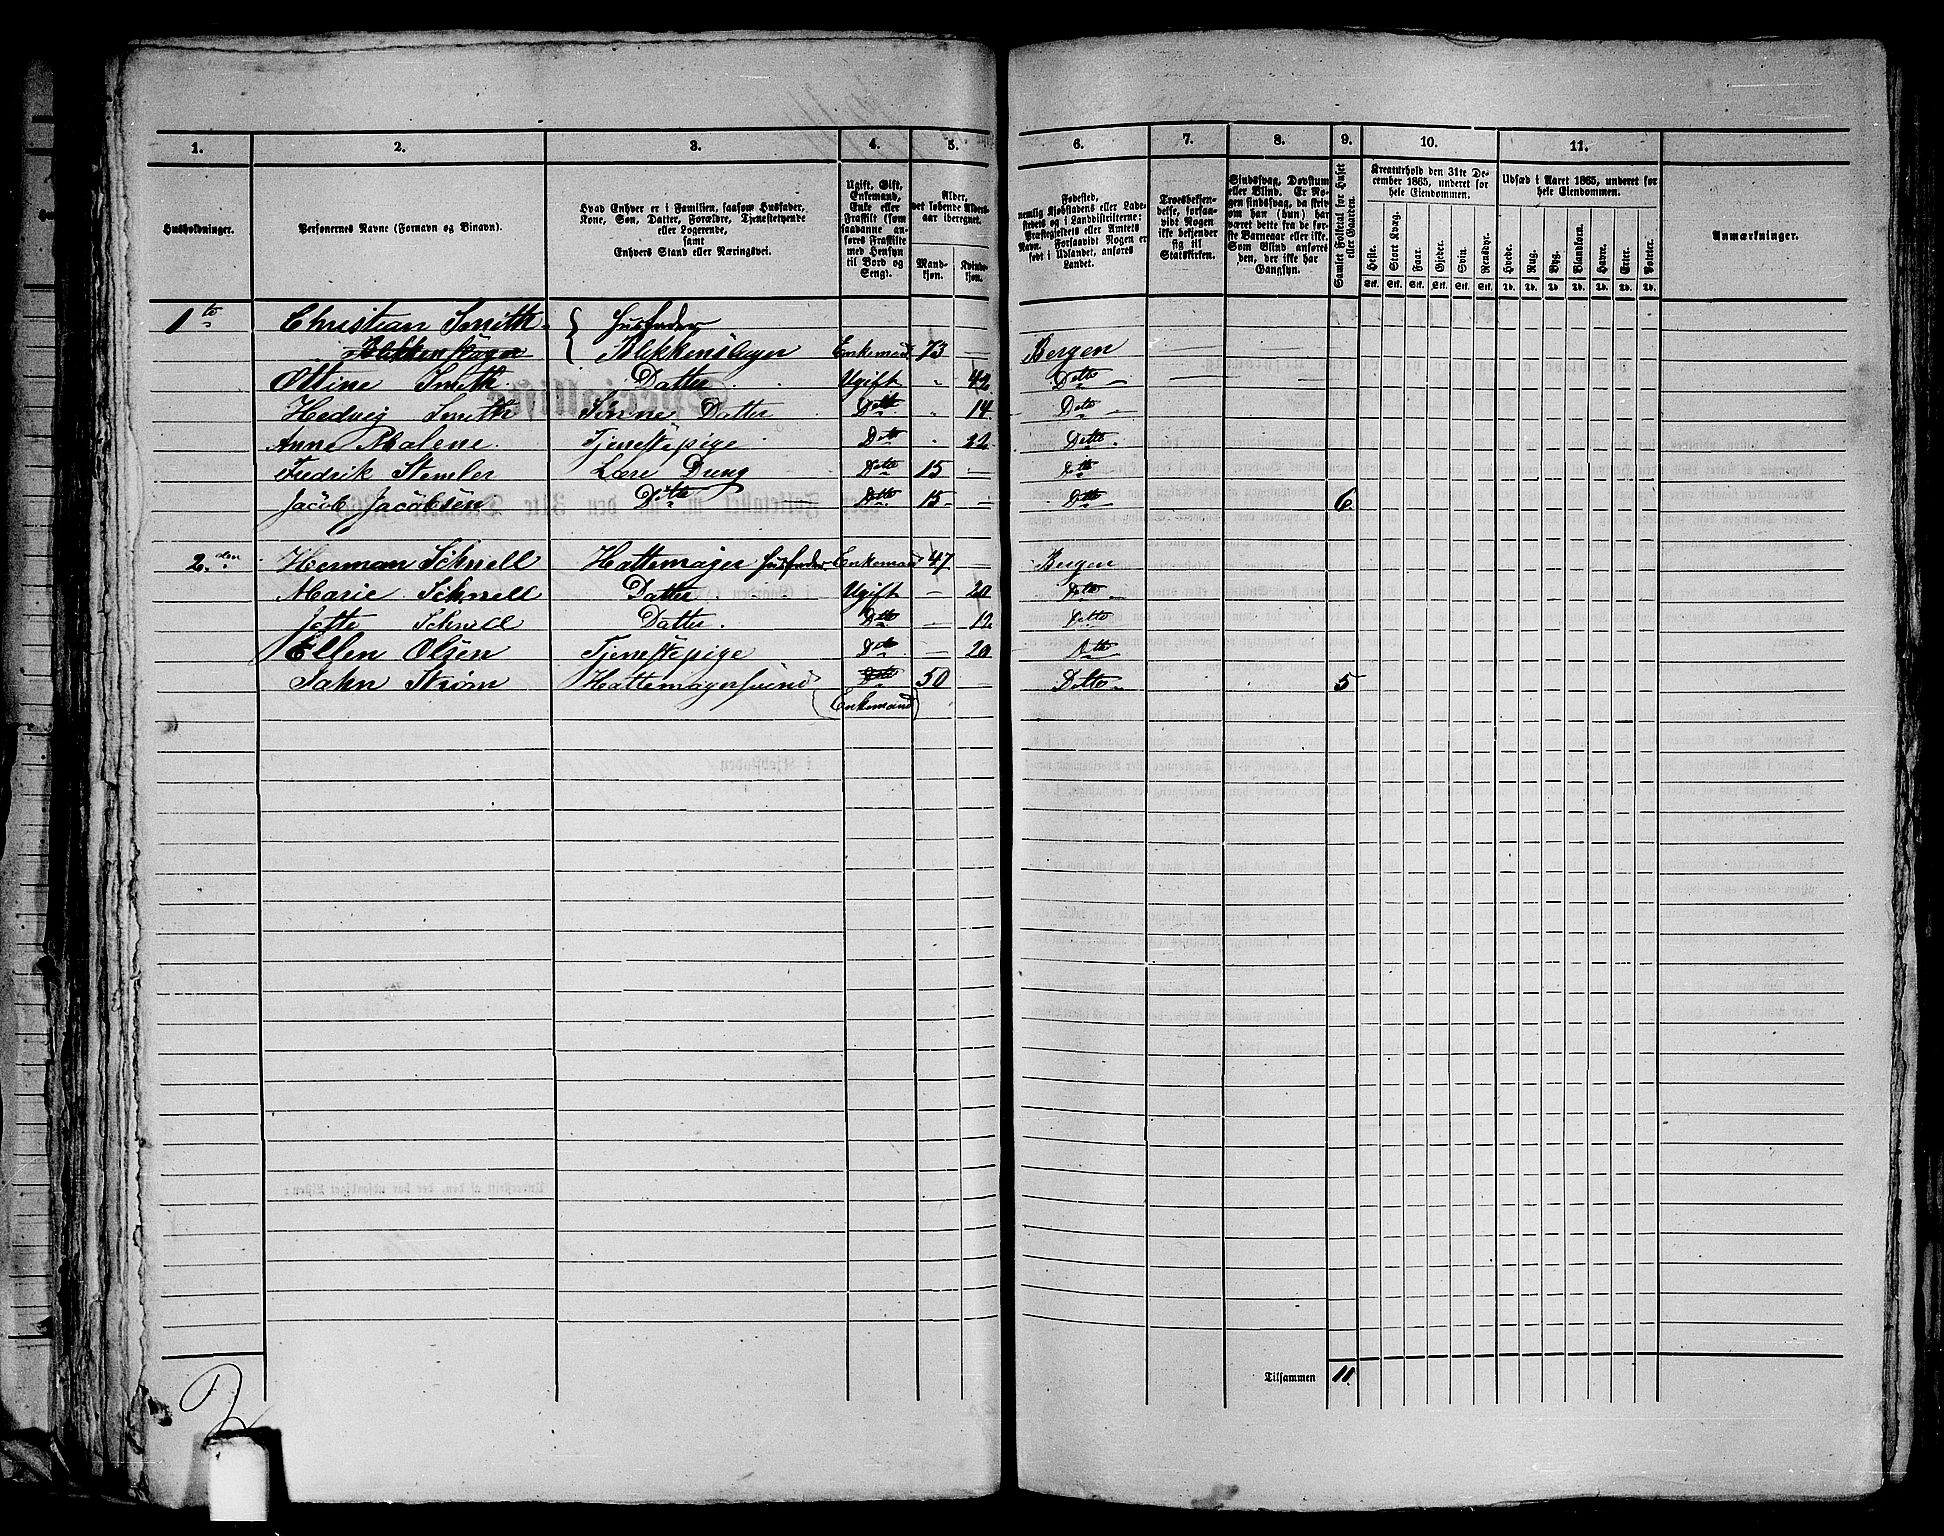 1. 2. 3. 4. 5. 6. 7. 8. 9. 10. 11.
Husholdninger.
Personernes Navne (Fornavn og Binavn).
Hvad Enhver er i Familien, saasom Husfader,
Kone, Søn, Datter, Forældre, Tjenestetyende
eller Logerende,
samt
Enhvers Stand eller Næringsvei.
Ugift, Gift,
Enkemand,
Enke eller
Fraskilt (som
saadanne an-
føres Fraskilte
med Hensyn
til Bord og
Seng).
Alder,
det løbende Alders-
aar iberegnet.
Mand-
kjøn.
Kvinde-
kjøn.
Fødested,
nemlig Kjøbstadens eller Lade-
stedets og i Landdistrikterne:
Præstegjeldets eller Amtets
Navn. Forsaavidt Nogen er
født i Udlandet, anføres
Landet.
Troesbekjen-
delse, forsaa-
vidt Nogen
ikke bekjender
sig til
Statskirken.
Sindssvag, Døvstum
eller Blind. Er No-
gen sindssvag, da skriv
om han (hun) har
været dette fra de før-
ste Barneaar eller ikke.
Som Blind anføres
den, der ikke har
Gangsyn.
Samlet Folketal for Huset
eller Gaarden.
Kreaturhold den 31te De-
cember 1865, underet for
hele Eiendommen.
Heste. Stort Kvæg. Faar. Gjeder. Svin. Rensdyr.
Stk. Stk. Stk. Stk. Stk. Stk.
Udsæd i Aaret 1865, underet for
hele Eiendommen.
Hvede. Rug. Byg. Blandkorn. Havre. Erter. Poteter.
Td. Td. Td. Td. Td. Td. Td.
Anmærkninger.
1te Christian Smith. { Husfader
Blikkenslager Blikkenslager Enkemand 73 — Bergen
Ottine Smith Datter Ugift " 42 Ditto
Hedvig Smith Sønne Datter Ditto " 14 Ditto
Anne Malene. Tjenestepige Ditto " 22 Ditto
Fredrik Stemler Lære Dreng Ditto 15 — Ditto
Jacob Jacobsen Ditto Ditto 15 — Ditto 6
2den Herman Schnell Hattemager Husfader Enkemand 47 — Bergen
Marie Schnell Datter Ugift — 20 Ditto
Jette Schnell Datter Ditto — 12 Ditto
Ellen Olsen Tjenestepige Ditto — 20 Ditto
John Strøm Hattemagersvend Ditto 50 — Ditto 5
(Enkemand)
Tilsammen 11